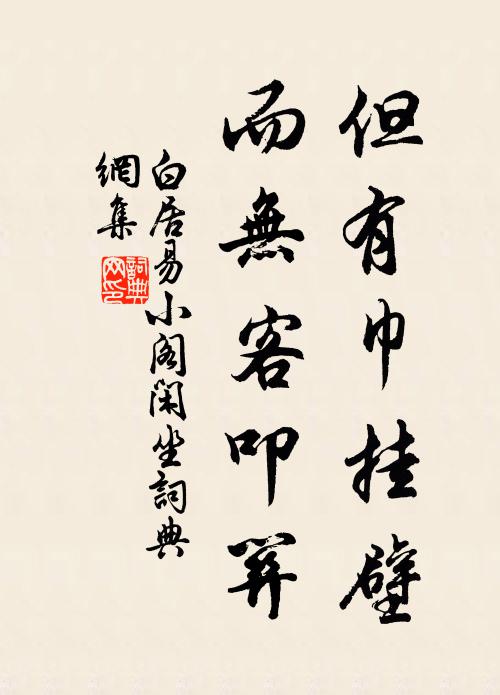 但有巾挂壁
而無客叩關
白居易小閣閑坐詞典
網集
詞典
网印